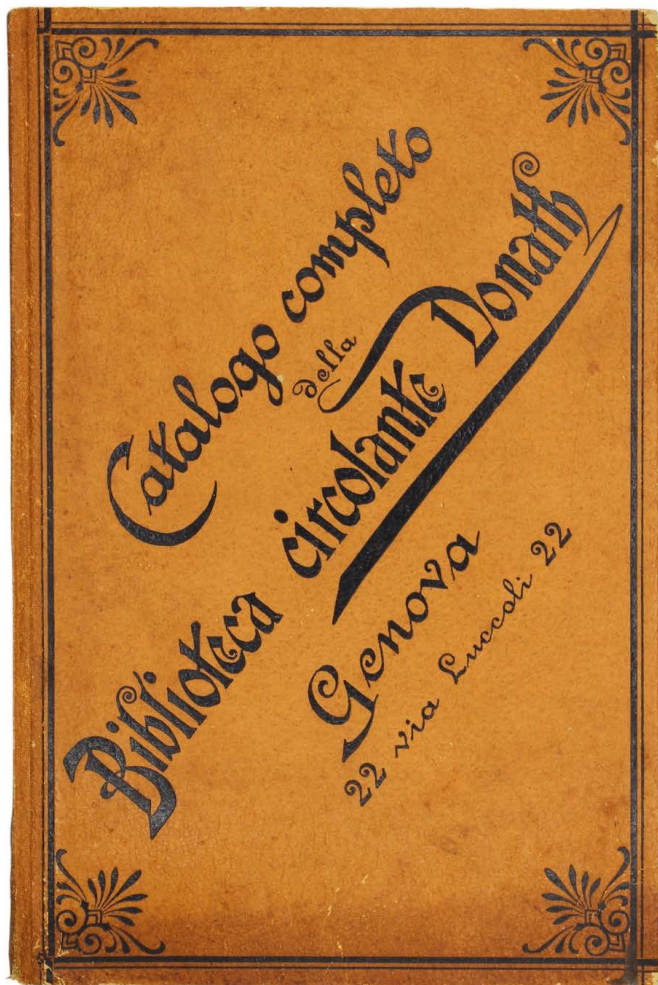 Catalogo completo
della
Biblioteca circolante Donath
Genova
22 via Luccoli 22